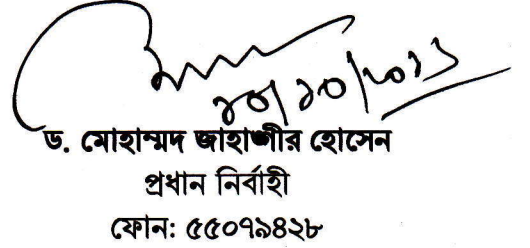 ড. মোহাম্মদ জাহাঙ্গীর হোসেন
প্রধান নির্বাহী
ফোন: ৫৫০৭৯৪২৮